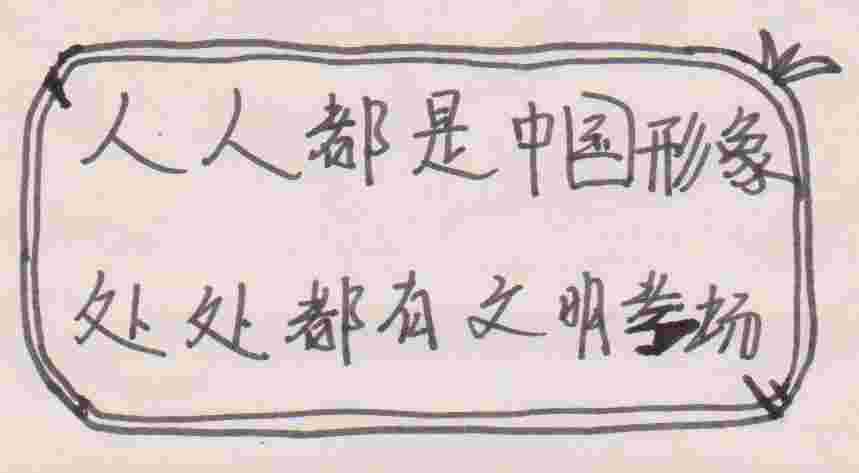 人人都是中国形象
处处都有文明考场